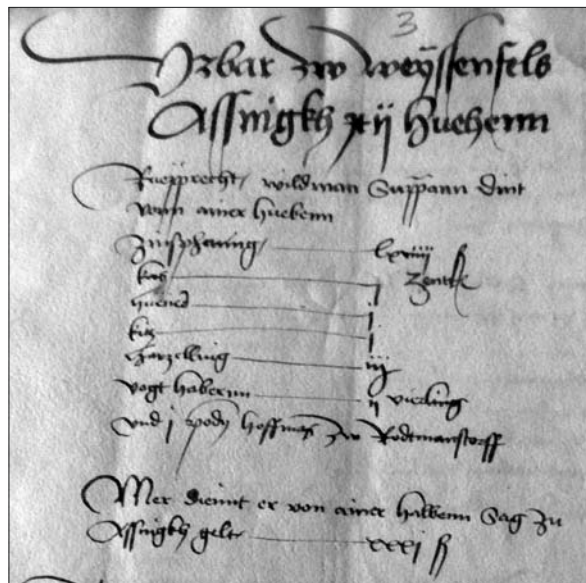 3
zw Weÿssenfels
Assnigkh xij huebenn
Rueprecht wildman Suppann dint
vonn ainer huebenn
Zinsphening lxviiij
j Zentt
huened j
j
harzelling iij
vogt habernn ij vierling
vnd j hoffmas zw Rodtmanstorff
Mer diennt er von ainer halbenn Sag zu
Assnigkh gelt xxxj ß